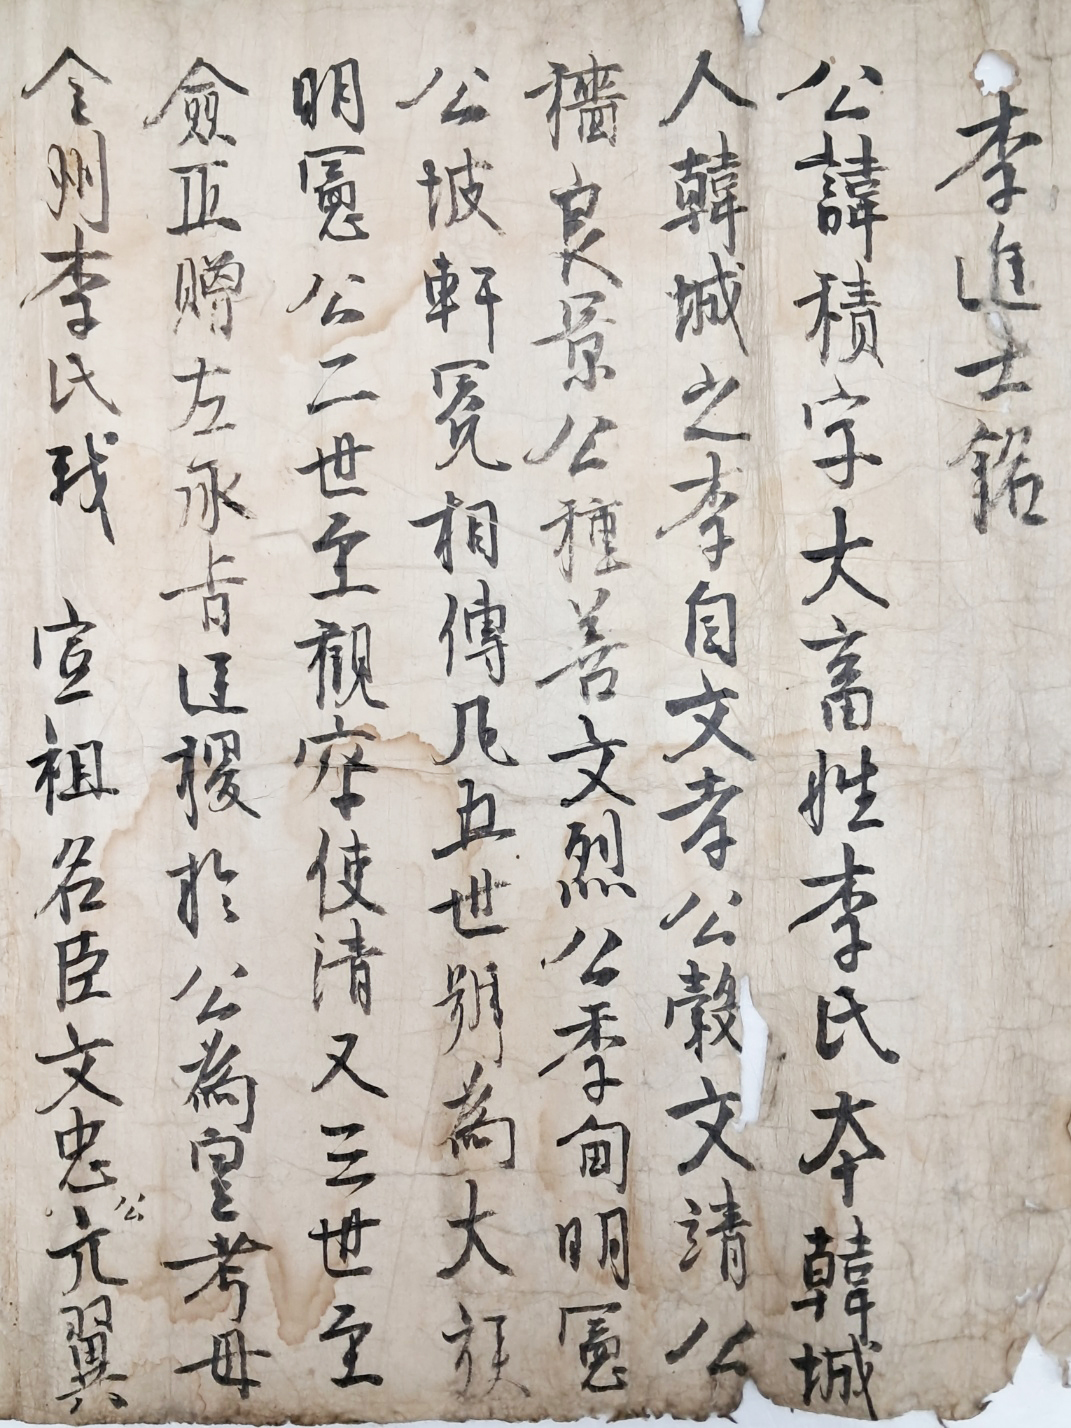 李進士銘
公諱積字大畜姓李氏本韓城
人韓城之李自文孝公穀文請公
穡良景公種善文烈公季甸明憲
公坡軒冕相傳凡五世號為大族
明憲公二世至觀察使清又三世至
僉正贈左承旨匡稷於公為皇考毋
全州李氏我 宣祖名臣文忠公元翼